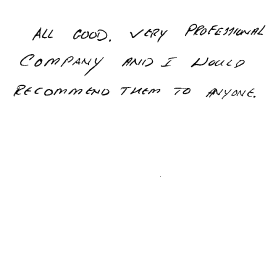 ALL GOOD. VERY PROFESSIONAL
COMPANY AND I WOULD
RECOMMEND THEM TO ANYONE.